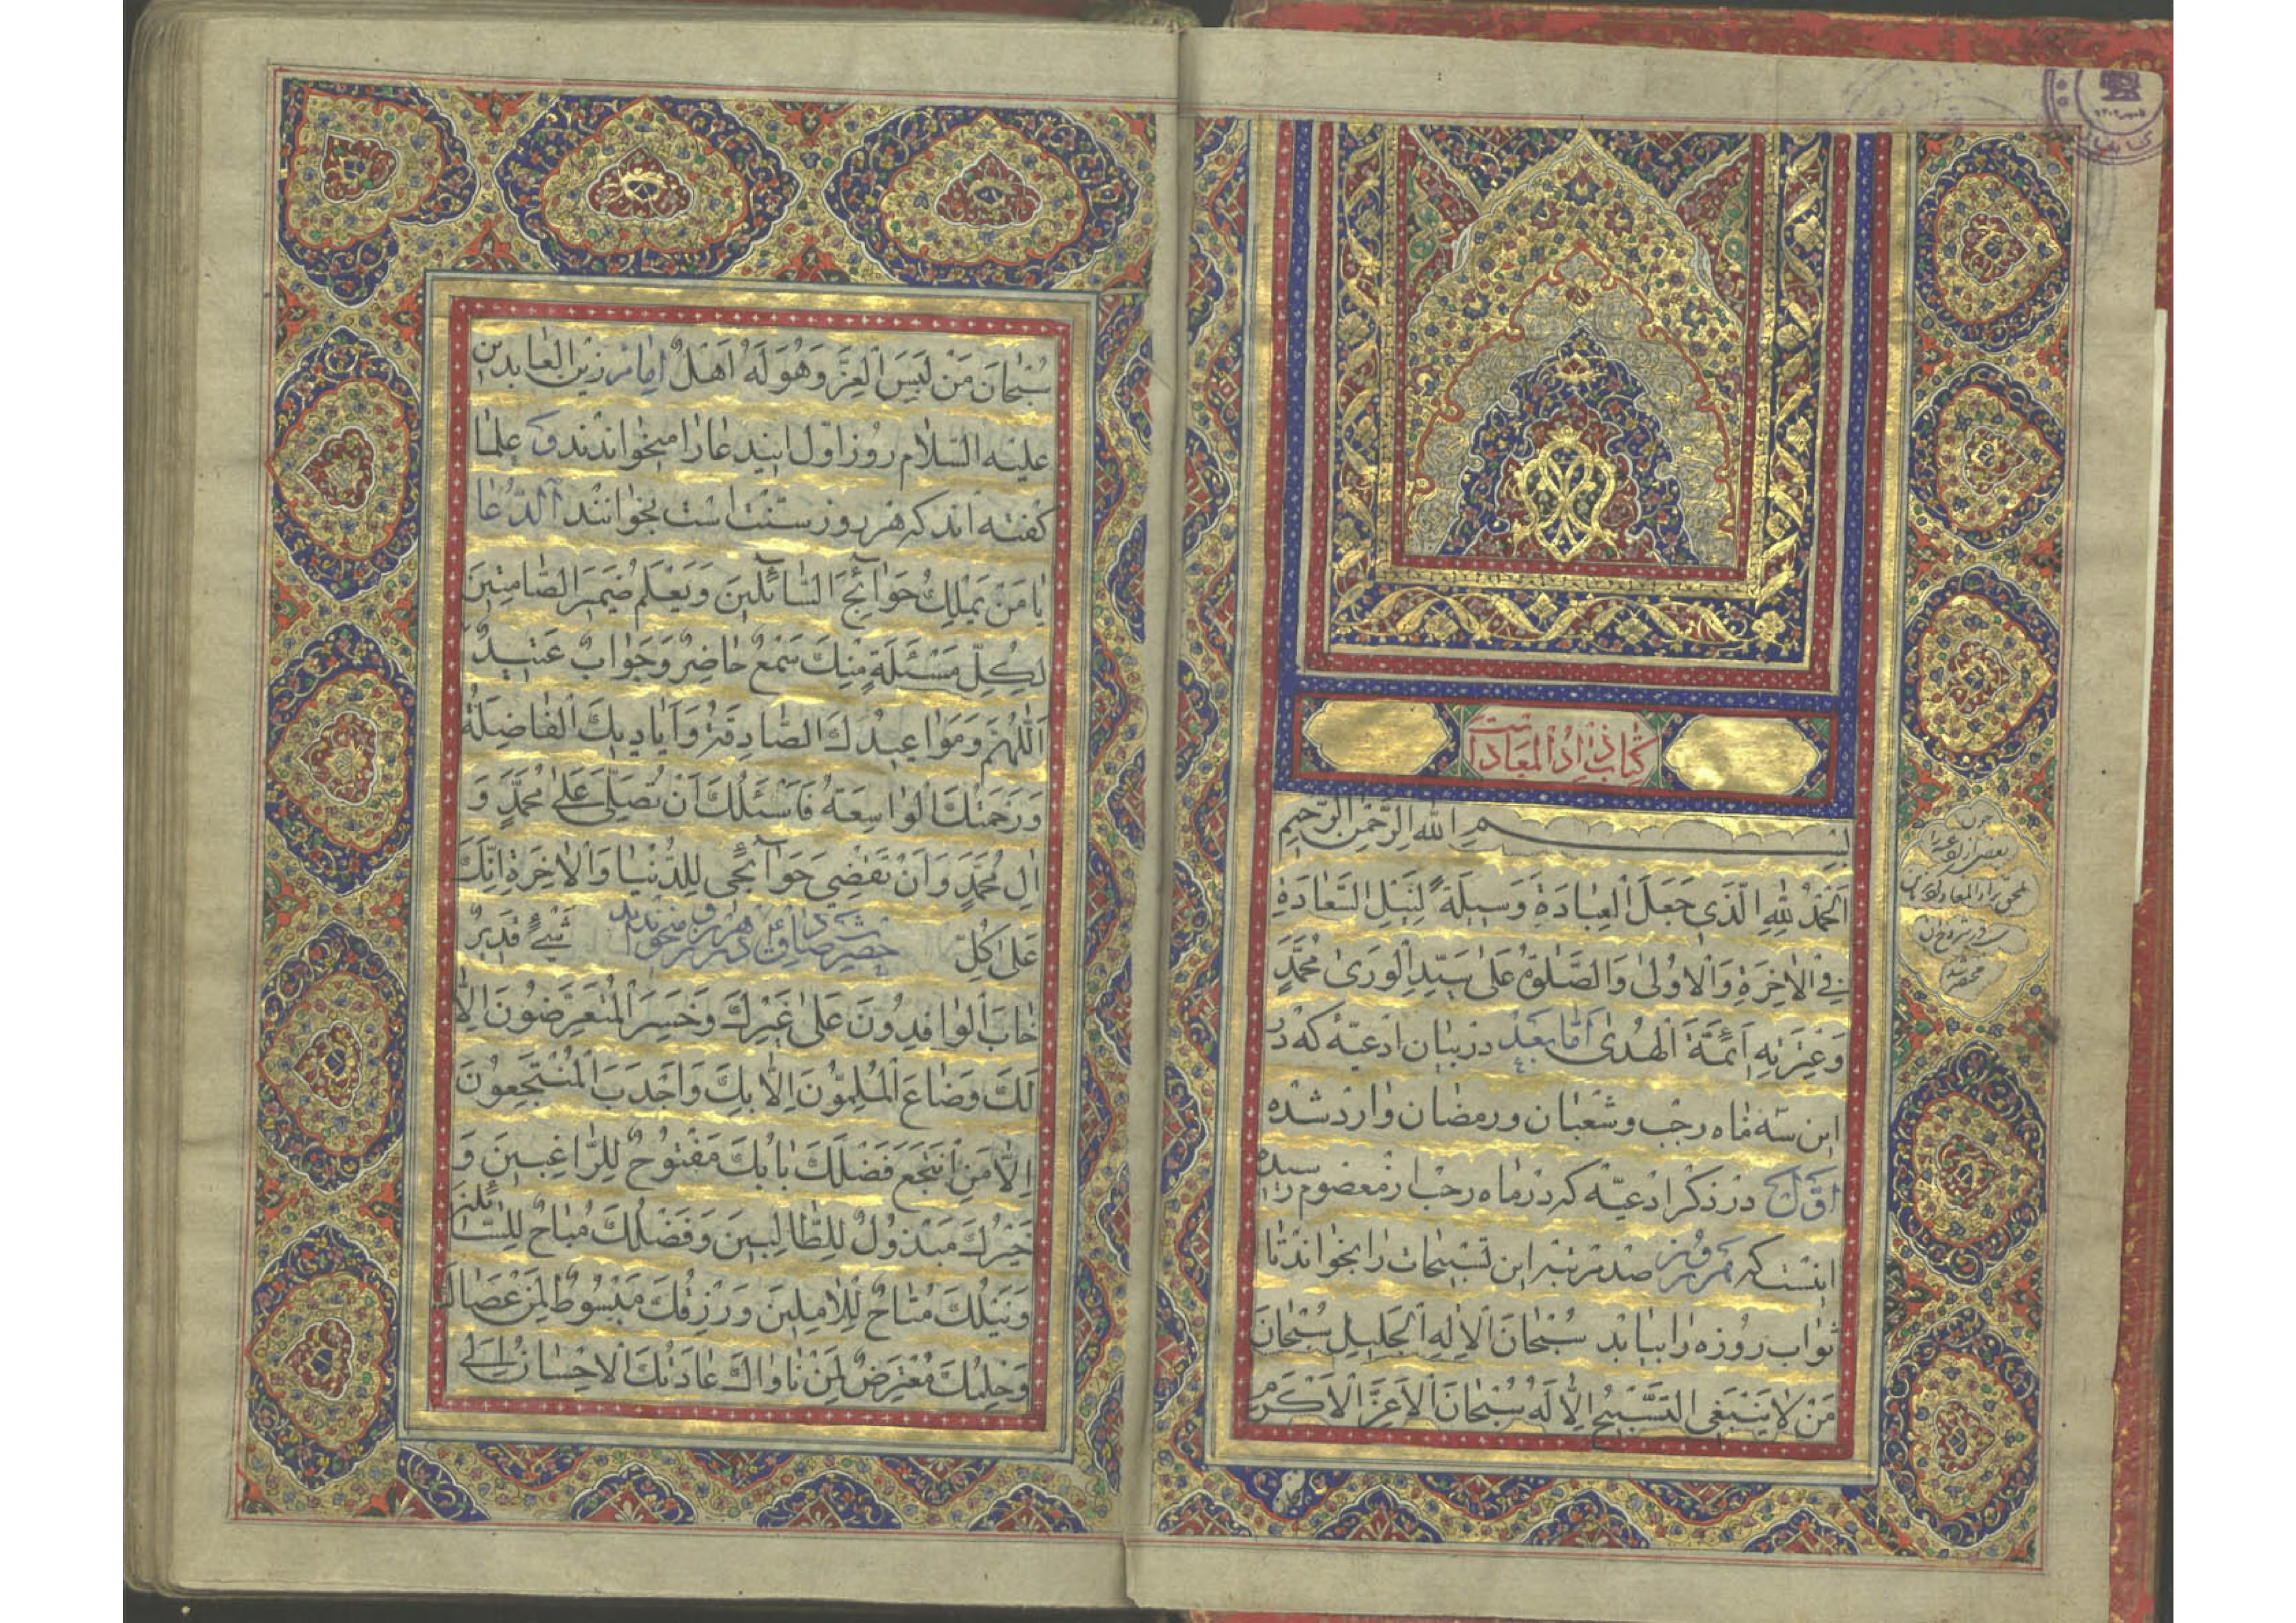 كتاب زاد المعاد است
بِسْمِ اللهِ الرَّحْمنِ الرَّحيمِ
اَلْحَمْدُ لِلّهِ الَّذي جَعَلَ الْعِبادَةَ وَسيلَةً لِنَيْلِ السَّعادَةِ
فِي الْاخِرَةِ وَالْاُولى وَالصَّلوةُ عَلى سَيِّدِ الْوَرى مُحَمَّدٍ
وَعِتْرَتِهِ اَئِمَّةَ الْهُدى اَمّا بَعْدُ در بيان ادعيّه كه در
اين سه ماه رجب و شعبان و رمضان وارد شده
اوّل در ذكر ادعيّه كه در ماه رجب از معصوم رسيده
اينست كه هر روز صد مرتبه اين تسبيحات را بخواند تا
ثواب روزه را بيابد سُبْحانَ الْاِلهِ الْجَليلِ سُبْحانَ
مَنْ لا يَنْبَغِي التَّسْبيحُ اِلّا لَهُ سُبْحانَ الْاَعَزِّ الْاَكْرَمِ
چون
بعضى از ادعيه
ملحق بزاد المعاد
سُبْحانَ مَنْ لَبِسَ الْعِزَّ وَهُوَ لَهُ اَهْلٌ امام زين العابدين
عليه السلام روز اوّل اين دعا را ميخواندند و علما
كفته اند كه هر روز سنّت است بخوانند الدّعا
يا مَنْ يَمْلِكُ حَوآئِجَ السّآئِلينَ وَيَعْلَمُ ضَميرَ الصّامِتينَ
لِكُلِّ مَسْئَلَةٍ مِنْكَ سَمْعٌ حاضِرٌ وَجَوابٌ عَتيدٌ
اَللّهُمَّ وَمَواعيدُكَ الصّادِقَةُ وَاَياديكَ الْفاضِلَةُ
وَرَحْمَتُكَ الْواسِعَةُ فَاَسْئَلُكَ اَنْ تُصَلِّيَ عَلى مُحَمَّدٍ وَ
الِ مُحَمَّدٍ وَاَنْ تَقْضِيَ حَوآئِجي لِلدُّنْيا وَالْاخِرَةِ اِنَّكَ
عَلى كُلِّ شَيْءٍ قَديرٌ حضرت صادق ع در هر روز ميخواندند
خابَ الْوافِدُونَ عَلى غَيْرِكَ وَخَسِرَ الْمُتَعَرِّضُونَ اِلّا
لَكَ وَضاعَ الْمُلِمُّونَ اِلّا بِكَ وَاَجْدَبَ الْمُنْتَجِعُونَ
اِلّا مَنِ انْتَجَعَ فَضْلَكَ بابُكَ مَفْتُوحٌ لِلرّاغِبينَ وَ
خَيْرُكَ مَبْذُولٌ لِلطّالِبينَ وَفَضْلُكَ مُباحٌ لِلسّائِلينَ
وَنَيْلُكَ مُتاحٌ لِلْامِلينَ وَرِزْقُكَ مَبْسُوطٌ لِمَنْ عَصاكَ
وَحِلْمُكَ مُعْتَرِضٌ لِمَنْ ناواكَ عادَتُكَ الْاِحْسانُ اِلَى